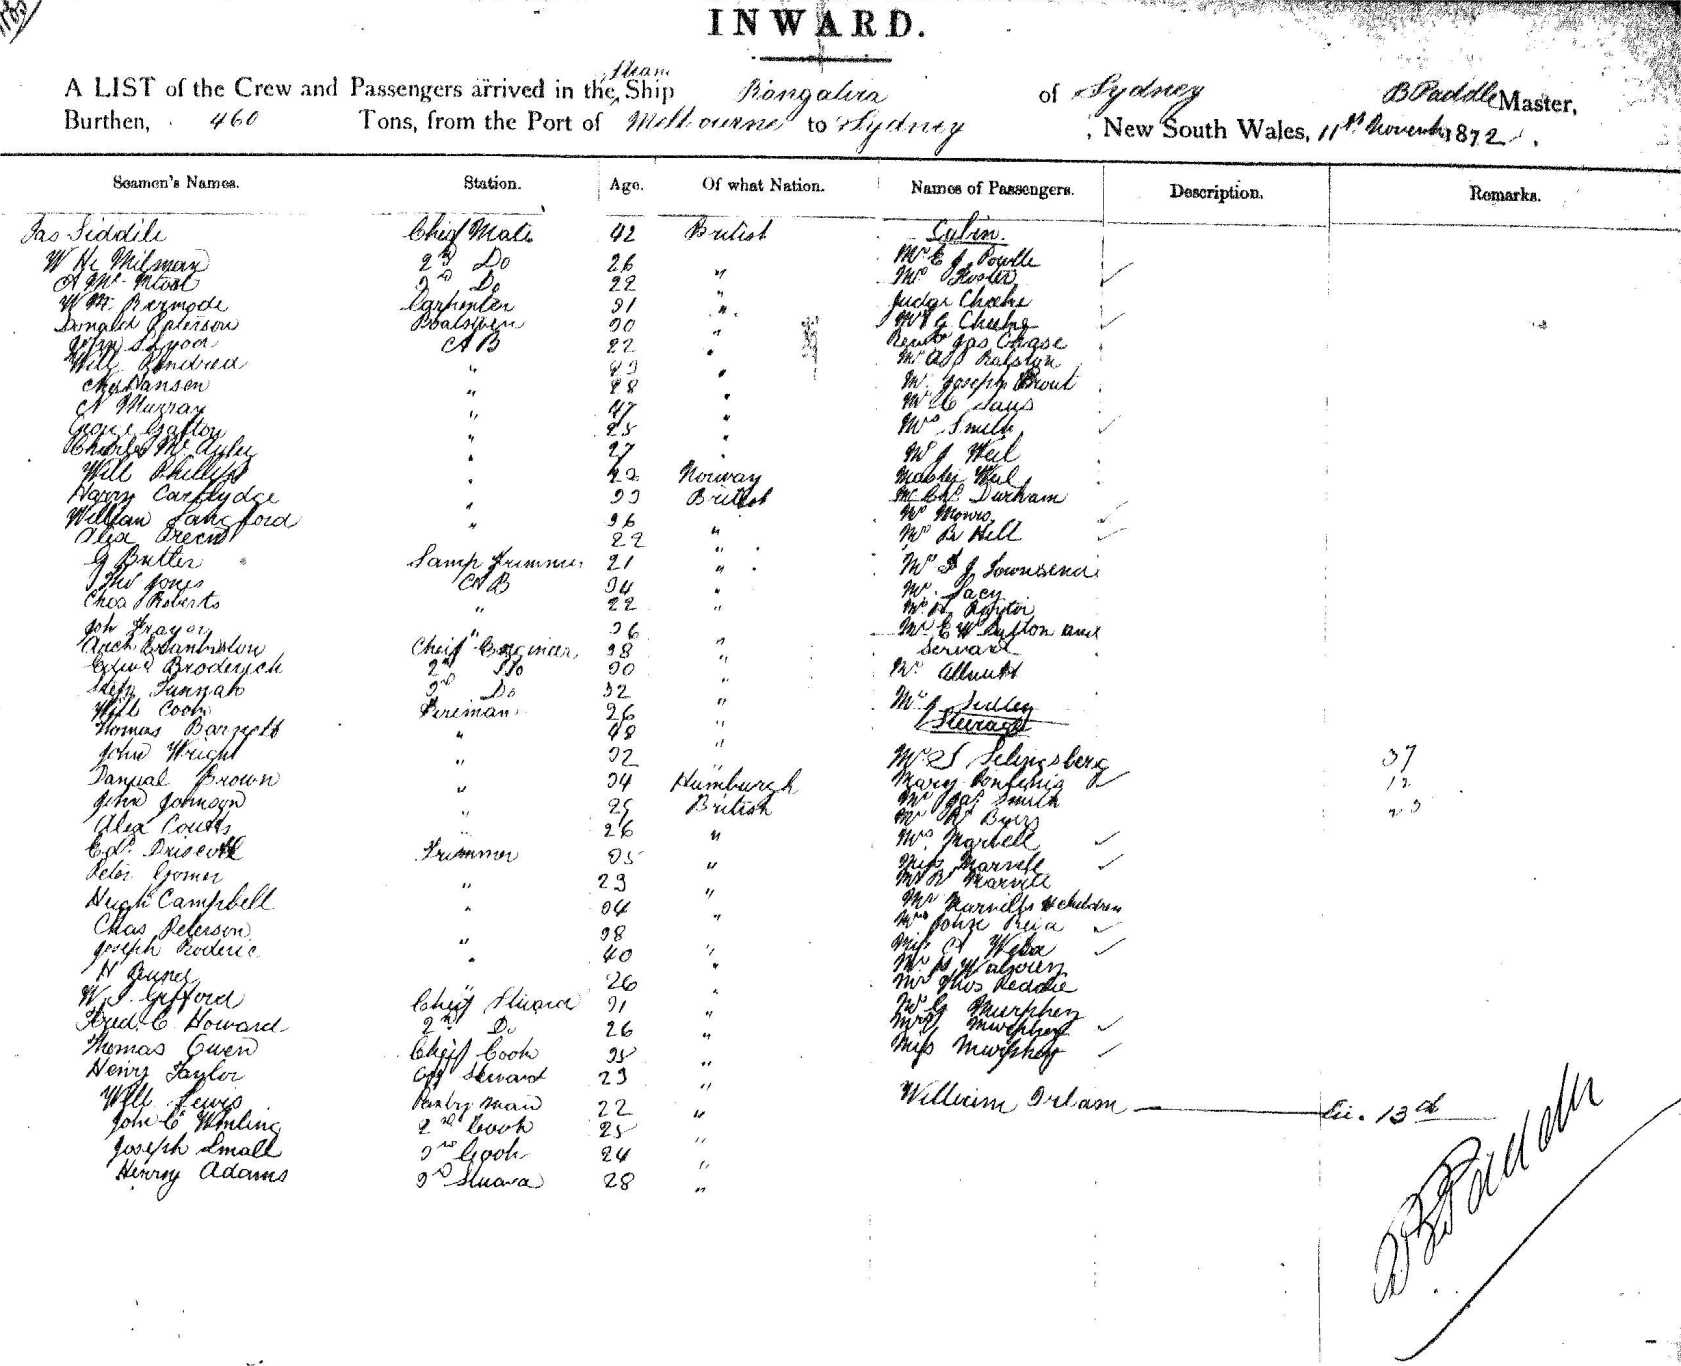 INWARD.
A LIST of the Crew and Passengers arrived in the Steam Ship Rangatira of Sydney B Paddle Master,
Burthen, 460 Tons, from the Port of Melbourne to Sydney , New South Wales, 11th November 1872.
Seamen's Names. Station. Age. Of what Nation. Names of Passengers. Description. Remarks.
Jas Siddile Chief Mate 42 British Cabin.
W H Milman 2nd Do 26 " Mr E J Powlle
3rd Do 22 " Mrs Foster
W Bermode Carpenter 31 " Judge Cheeke
Donald Paterson Boatswen 30 Mrs G Cheeke
John A B 22 " Revd Jas Chase
Will Kindred " " Mr Ralston
Chs Hansen " 28 " Mr Joseph Prout
A Murray " 47 " Mr C
George Grafton " 25 " Mrs Smith
Charles " 27 Mr J Weil
Will Phillips " 22 Norway Master Weil
Harry Carttydge " 33 British Mr Chs Durham
William Langford " 36 " Mrs Monro
Alex Green 22 " Mr B Hill
G Butler Lamp Trimmer 21 " Mrs J Townsend
Thos Jones A B 34 " Mr Lacy
Chas Roberts " 22 " Mr
Joh Frayer " 36 " Mr E W Sutton and
Arch Cheif Engineer 38 " Servant
Edwd Broderich 2nd Do 30 " Mr Allnutt
3rd Do 32 " Mr J Sedley
Will Cook Fireman 26 " Steerage
Thomas Barnett " 48 "
John Wright " 32 " Mr S Selingsberg 37
Danual Brown " 34 Humburgh Mary 12
John Johnson " 25 British Mr Jas Smith 23
Alex Coutts " 26 " Mr R Byers
Edd Driscoll Trimmer 35 " Mrs Marvell
Peter Gomer " 23 " Miss Marvell
Hugh Campbell " 34 " Mr R Marvell
Chas Peterson " 38 " Mr Marvells 4 children
Joseph Roderic " 40 " Mrs
H " 26 " Miss A Weba
W. J. Gifford Chief Stuard 31 " Mr H
Fred. C. Howard 2nd Do 26 " Mr Thos Reddie
Thomas Owen Chief Cook 35 " Mr G Murphey
Henry Taylor Steward 23 " Mrs Murphey
Will Lewis Pantry man 22 " Miss Murphey
John C 2nd Cook 25 " William Irlam 13
Joseph Small 3rd Cook 24 "
Henry Adams 3rd Stuard 28 "
B Paddle